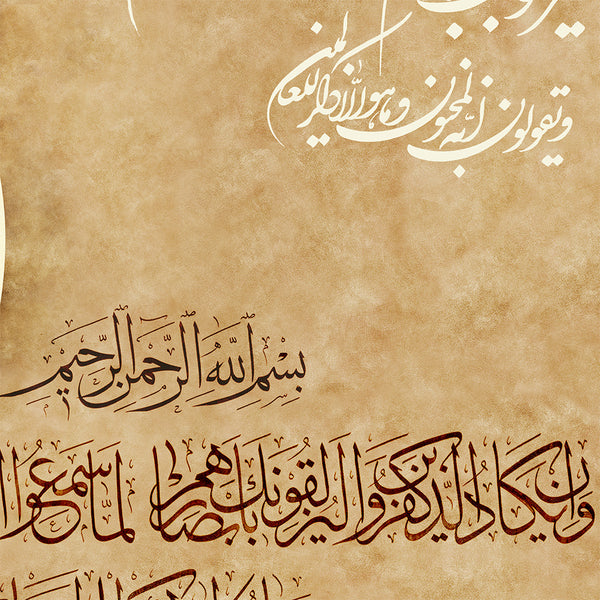 ويقولون إنه لمجنون وما هو إلا ذكر للعالمين
بسم الله الرحمن الرحيم
وإن يكاد الذين كفروا ليزلقونك بأبصارهم لما سمعوا